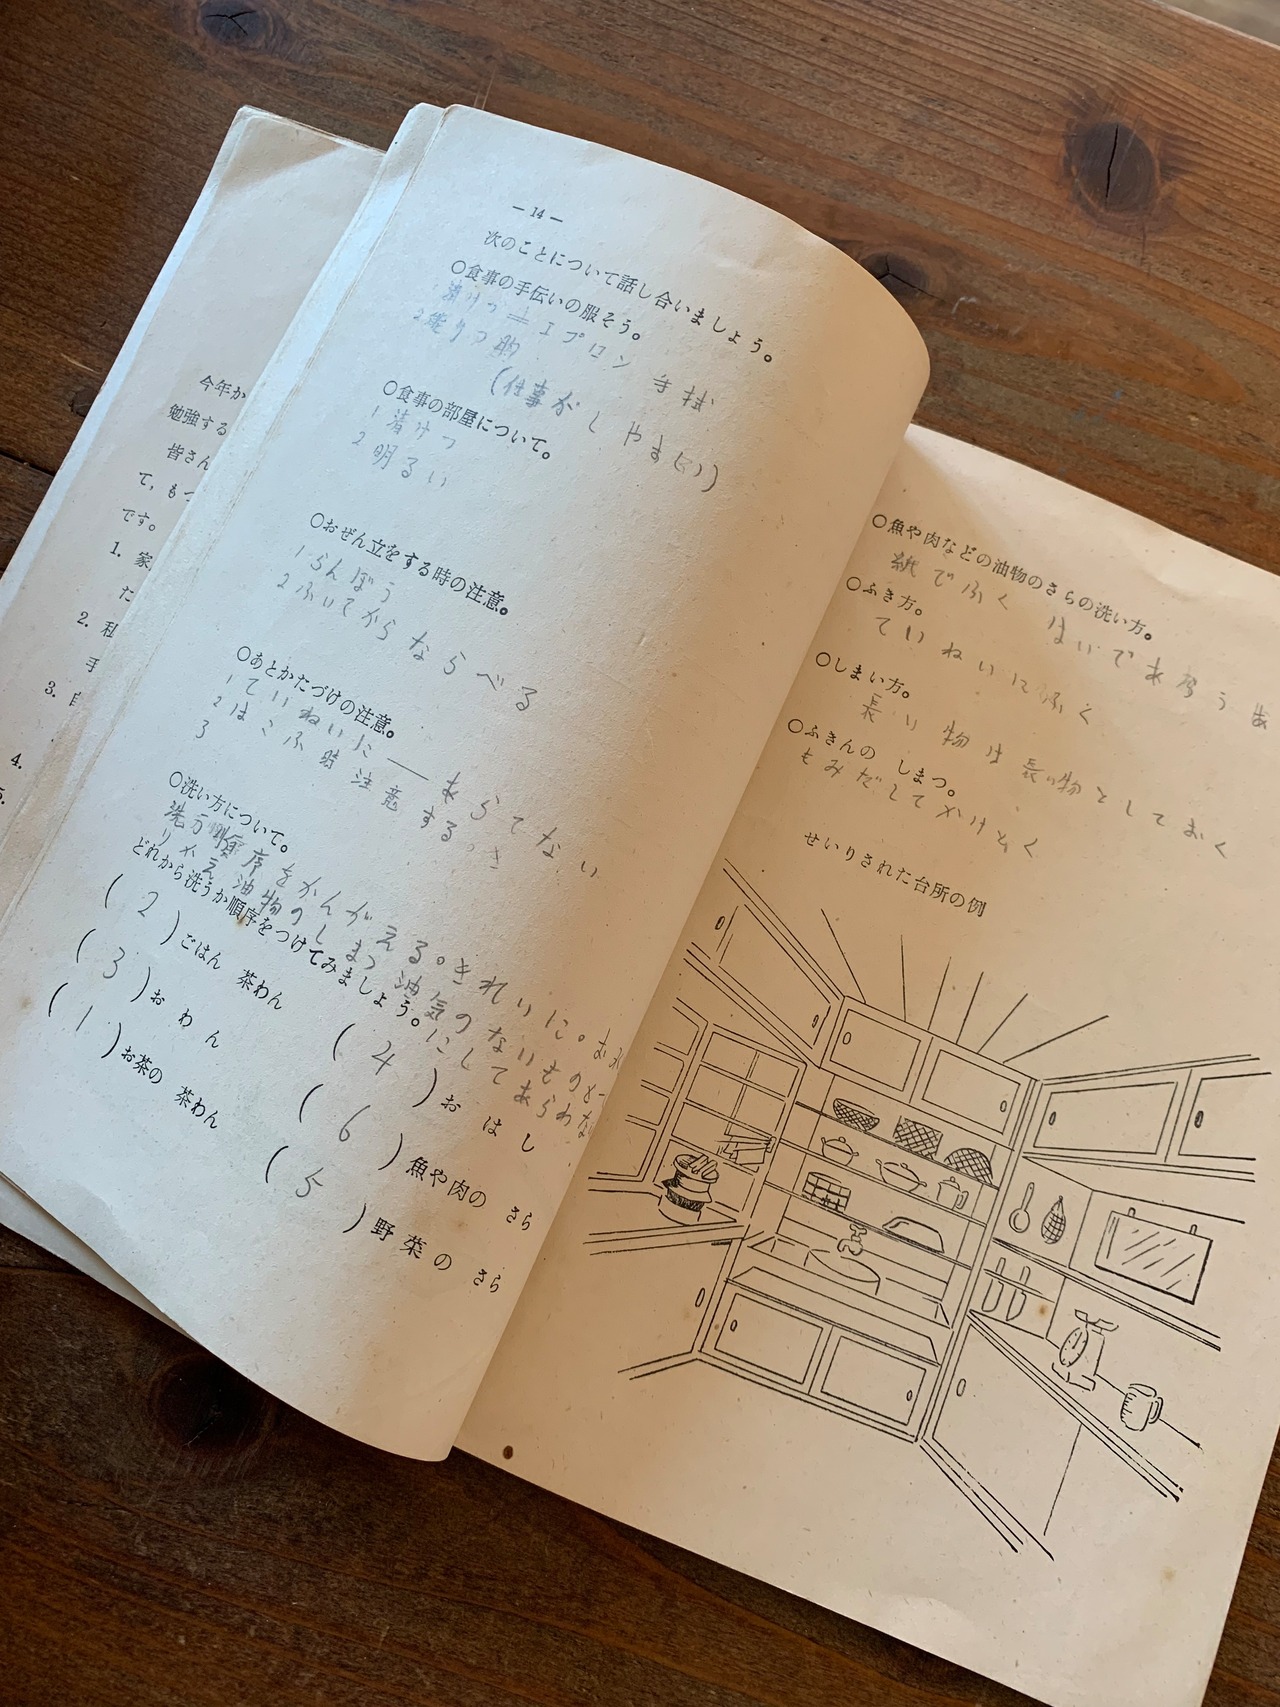 — 14 —
次のことについて話し合いましょう。
○食事の手伝いの服そう。
1 清けつ エプロン 手拭
2
(仕事が しやすい)
○食事の部屋について。
1 清けつ
2 明るい
○おぜん立をする時の注意。
1 らんぼう
2 ふいてからならべる
○あとかたづけの注意。
1 ていねいに — あらてない
2 はこぶ時注意する。
3
○洗い方について。
洗方順序をかんがえる。きれいに。
油物のしまつ 油気のないものを
にしてあらわな
どれから洗うか順序をつけてみましょう。
( 2 ) ごはん 茶わん
( 3 ) おわん
( 1 ) お茶の 茶わん
( 4 ) おはし
( 6 ) 魚や肉の さら
( 5 ) 野菜の さら
今年か
勉強する
皆さん
て、もつ
です。
1. 家
た
2. 私
手
3.
4.
5.
○魚や肉などの油物のさらの洗い方。
紙でふく はいであ
○ふき方。
ていねいにふく
○しまい方。
長い物は長い物としておく
○ふきんの しまつ。
もみだしてかけとく
せいりされた台所の例